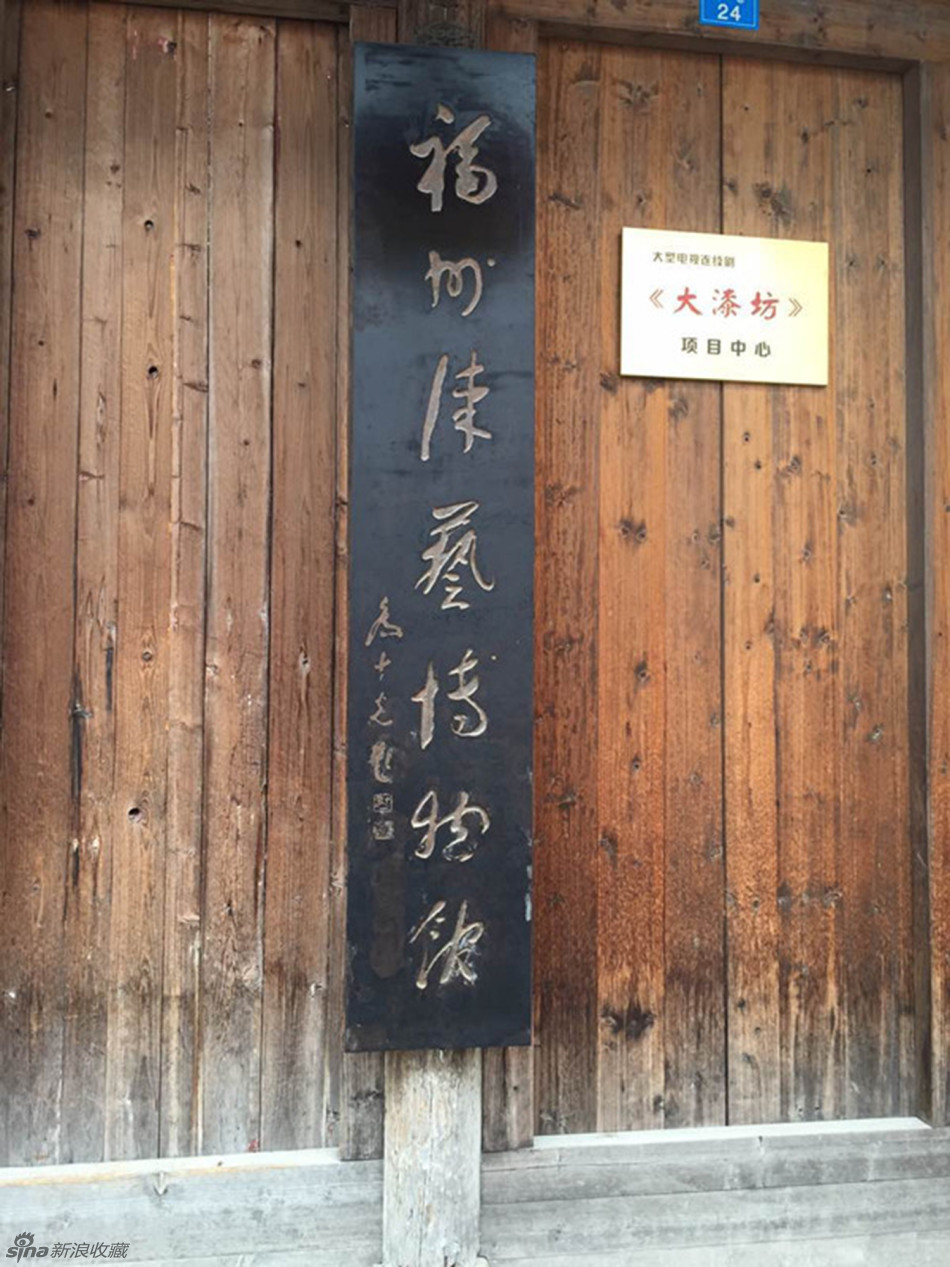 24
福州漆藝博物館
大型电视连续剧
《大漆坊》
项目中心
sina新浪收藏